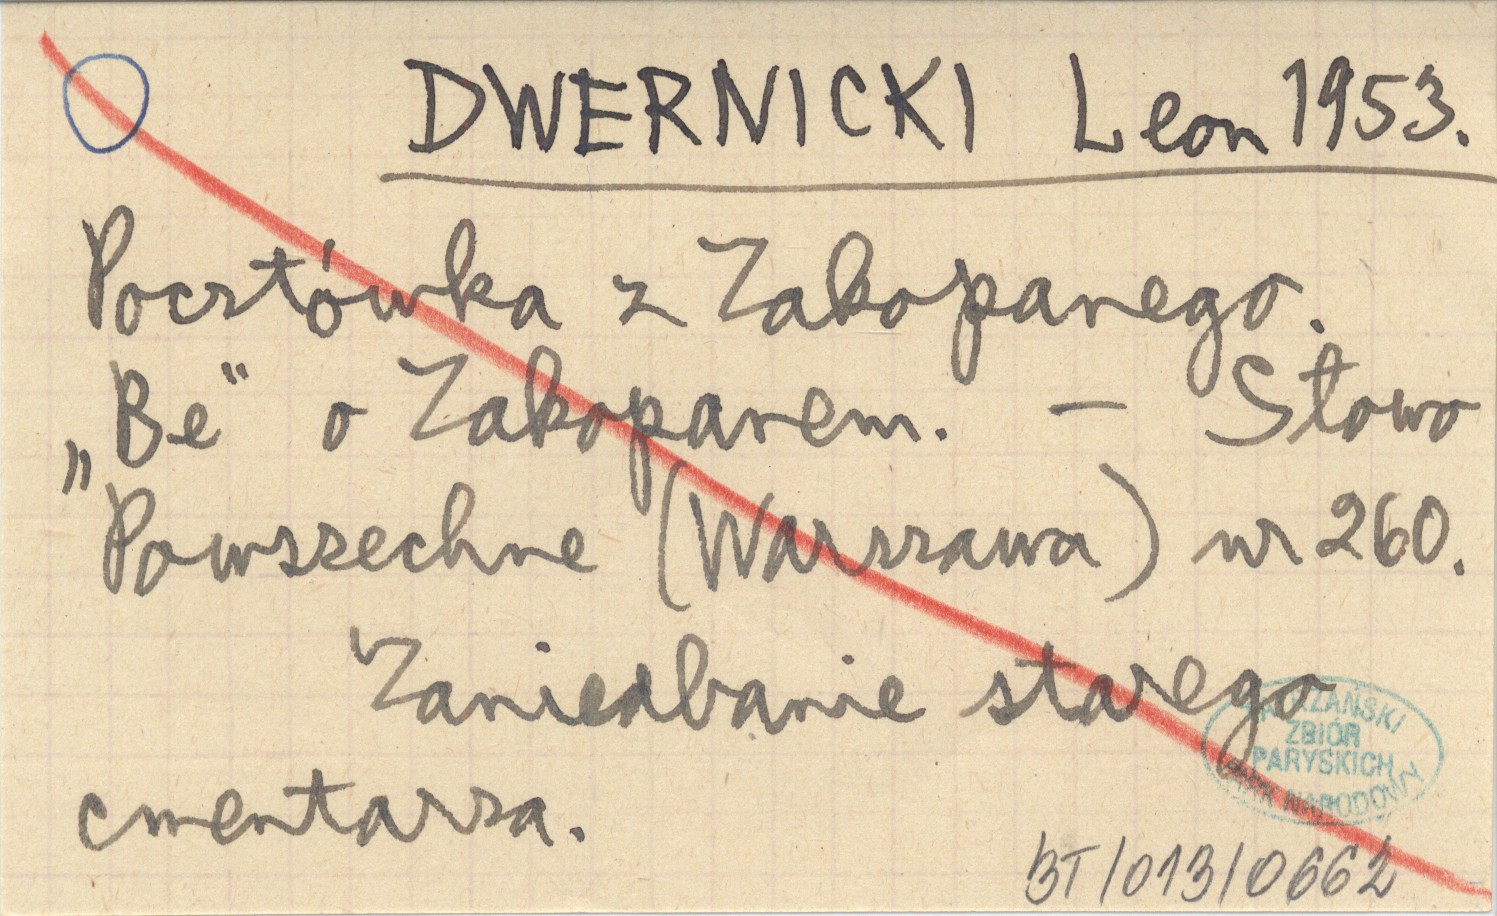 DWERNICKI Leon 1953.
Pocztówka z Zakopanego.
„Be“ o Zakopanem. – Słowo
Powszechne (Warszawa) nr 260.
Zaniedbanie starego
cmentarza.
ZBIÓR
PARYSKICH
NARODOWY
BT/013/0662